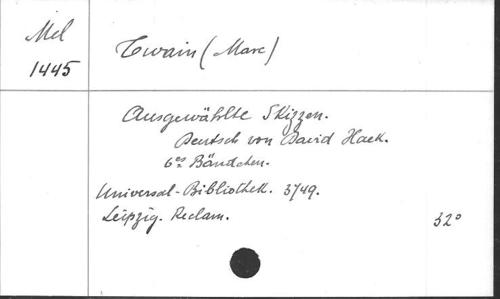 Mel
1445
Twain (Marc)
Ausgewählte Skizzen.
Deutsch von David Haek.
6es Bändchen.
Universal-Bibliothek. 3749.
Leipzig. Reclam.
32°